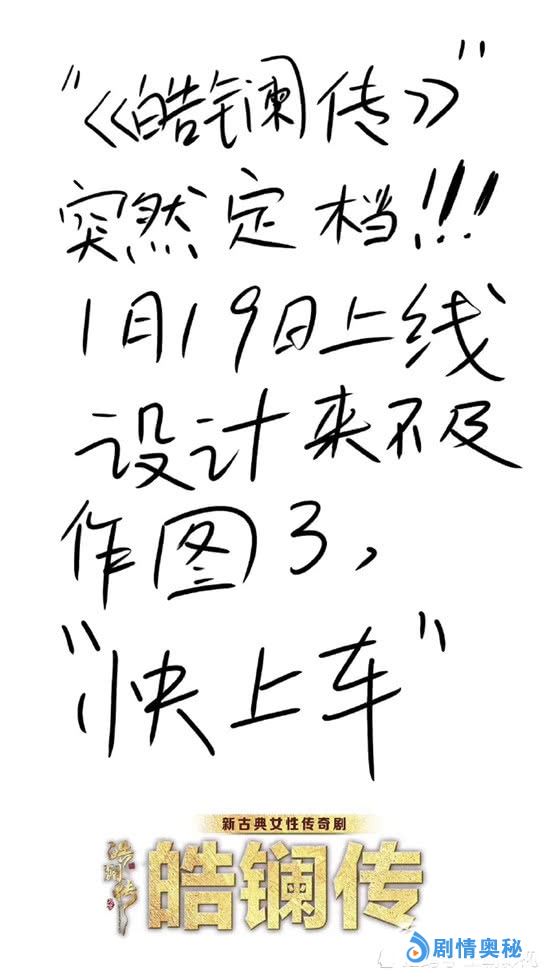 "《皓镧传》"
突然定档!!!
1月19日上线
设计来不及
作图了,
"快上车"
新古典女性传奇剧
皓镧传
皓镧传
剧情奥秘